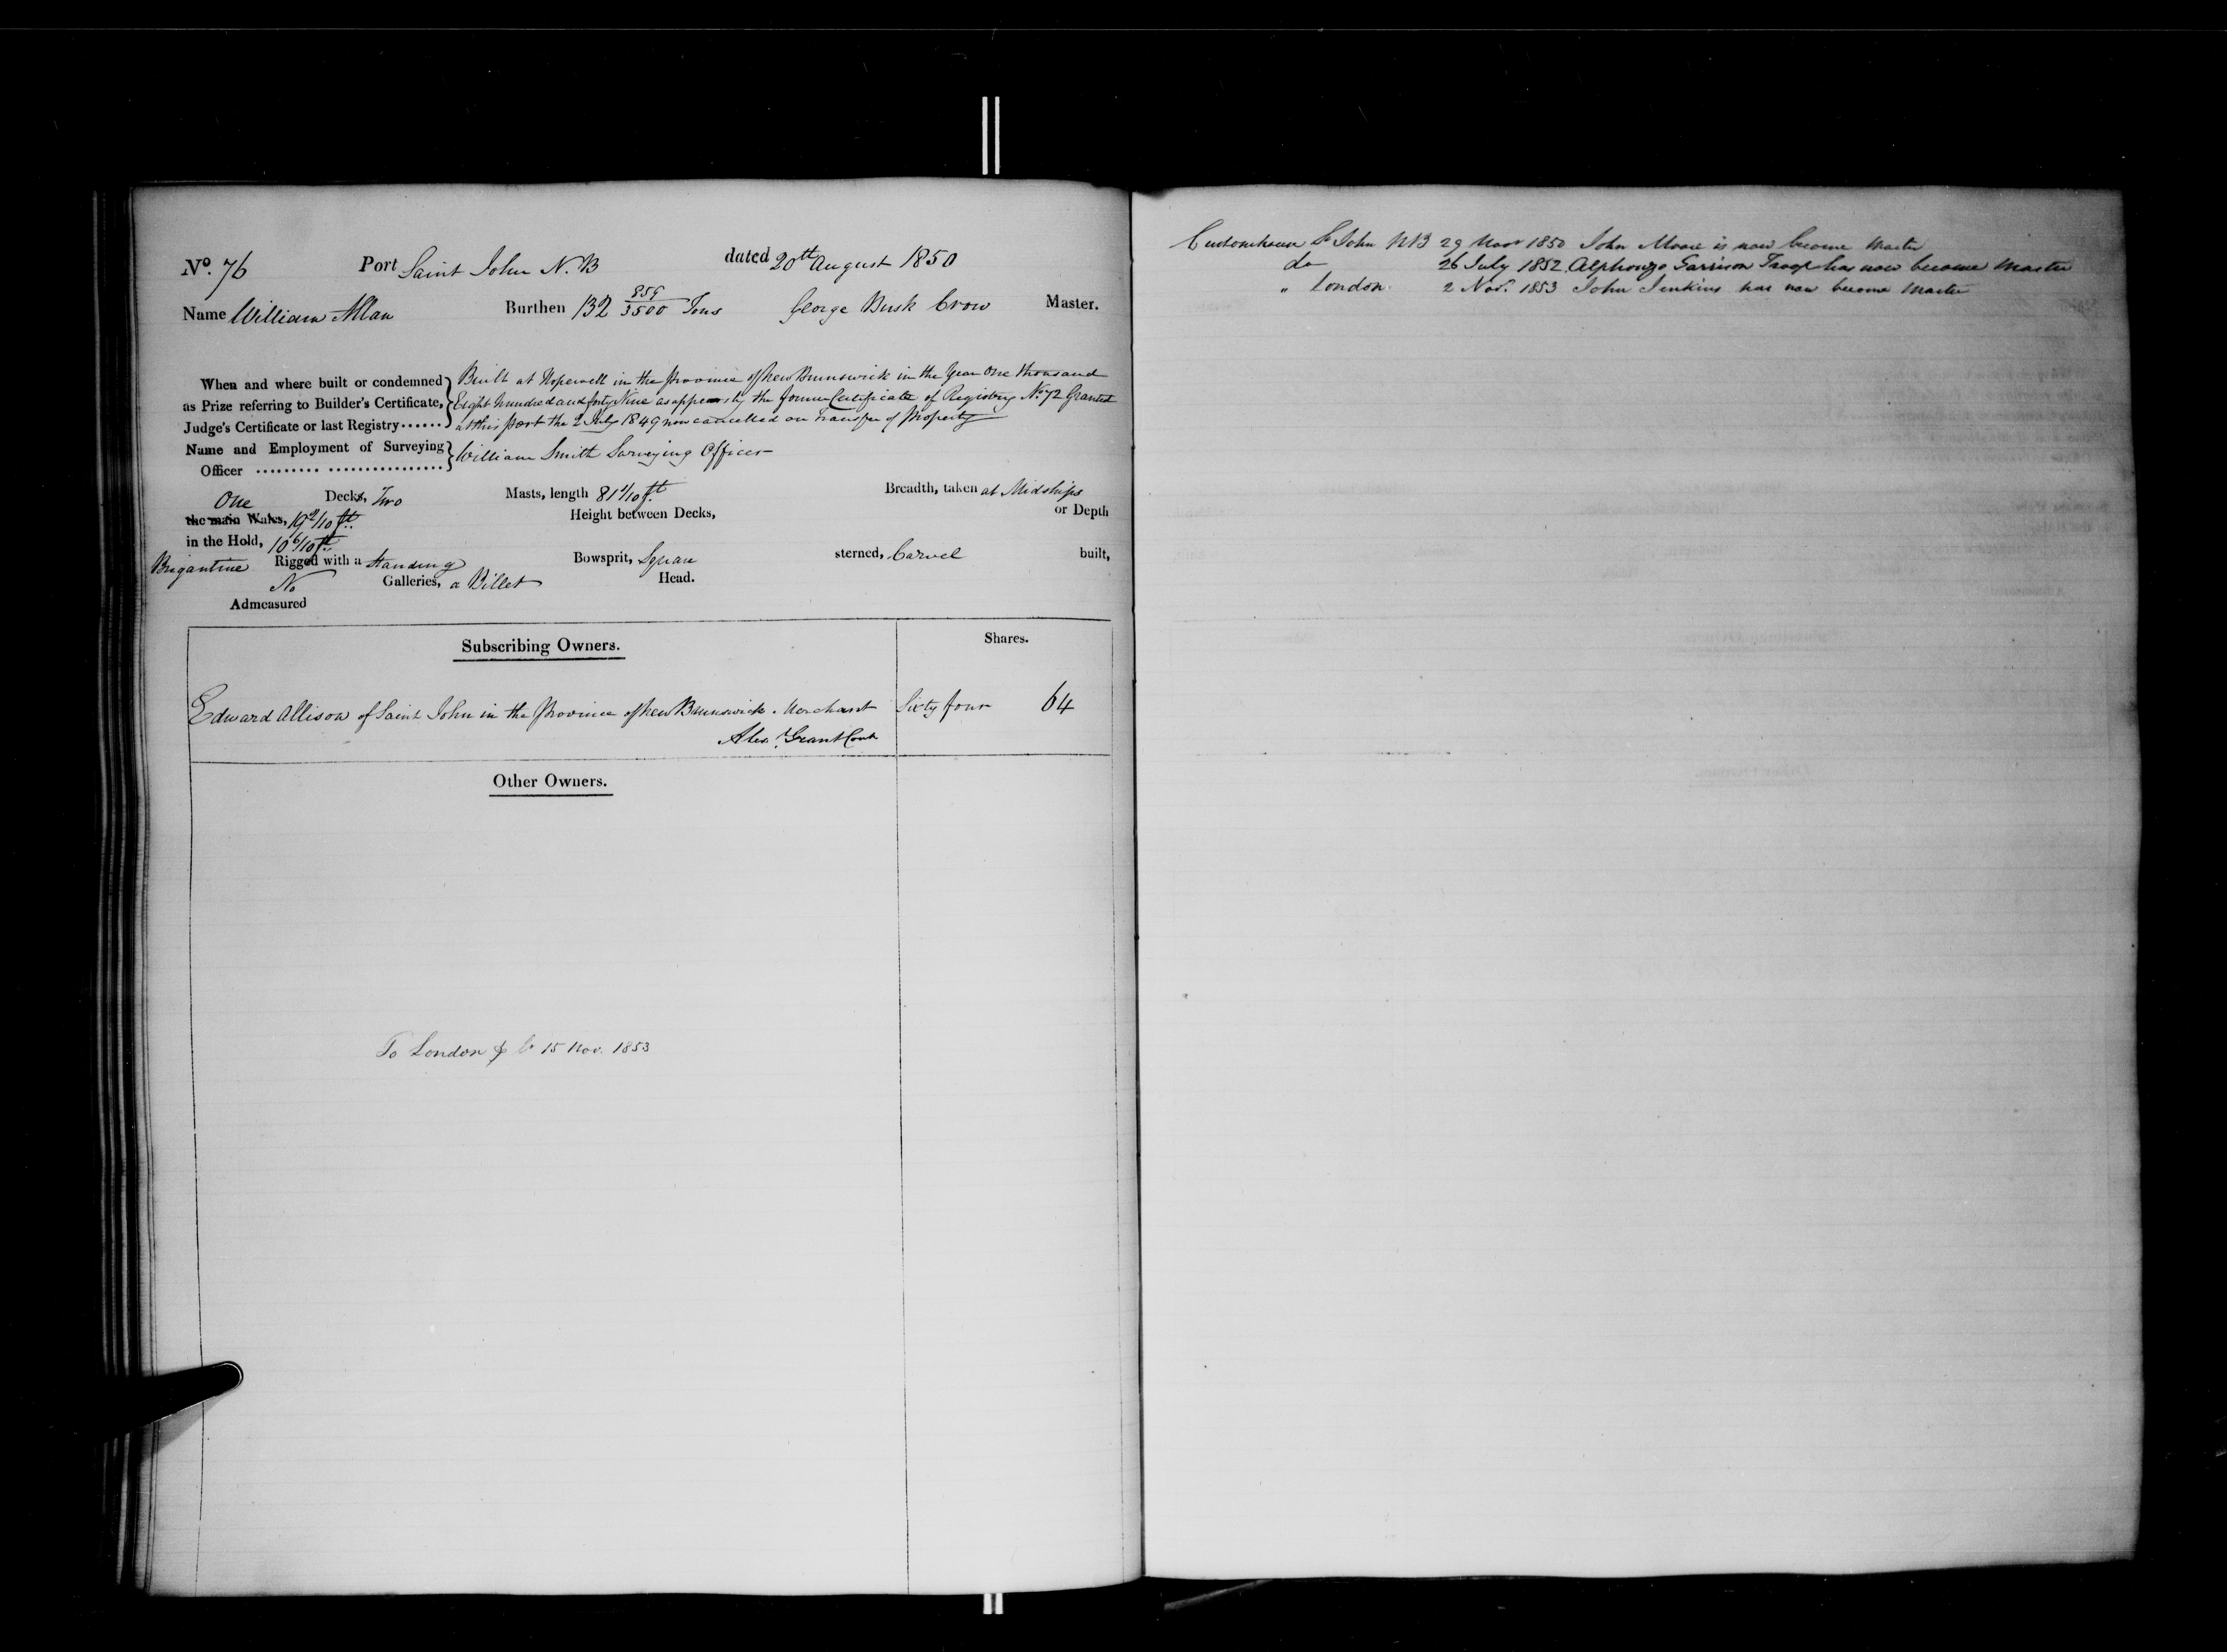 No. 76 Port Saint John N.B dated 20th August 1850
Name William Allan Burthen 132 859/3500 Tons George Busk Crow Master.
When and where built or condemned } Built at Hopewell in the Province of New Brunswick in the Year One thousand
as Prize referring to Builder's Certificate, } Eight hundred and forty Nine as appears by the former Certificate of Registry No 72 Granted
Judge's Certificate or last Registry...... } at this port the 2 July 1849 now cancelled on transfer of Property
Name and Employment of Surveying } William Smith Surveying Officer
Officer ......... ................
One Decks, Two Masts, length 81 1/10 ft Breadth, taken at Midships
the main Wales, 19 9/10 ft. Height between Decks, or Depth
in the Hold, 10 6/10 ft.
Brigantine Rigged with a Standing Bowsprit, Square sterned, Carvel built,
No Galleries, a Billet Head.
Admeasured
Subscribing Owners. Shares.
Edward Allison of Saint John in the Province of New Brunswick. Merchant Sixty four 64
Alexr Grant Cont
Other Owners.
To London 15 Nov. 1853
Customhouse St John NB 29 Novr 1850 John Moore is now become Master
do 26 July 1852. Alphonzo Garrison Troop has now become Master
" London. 2 Novr. 1853 John Jenkins has now become Master